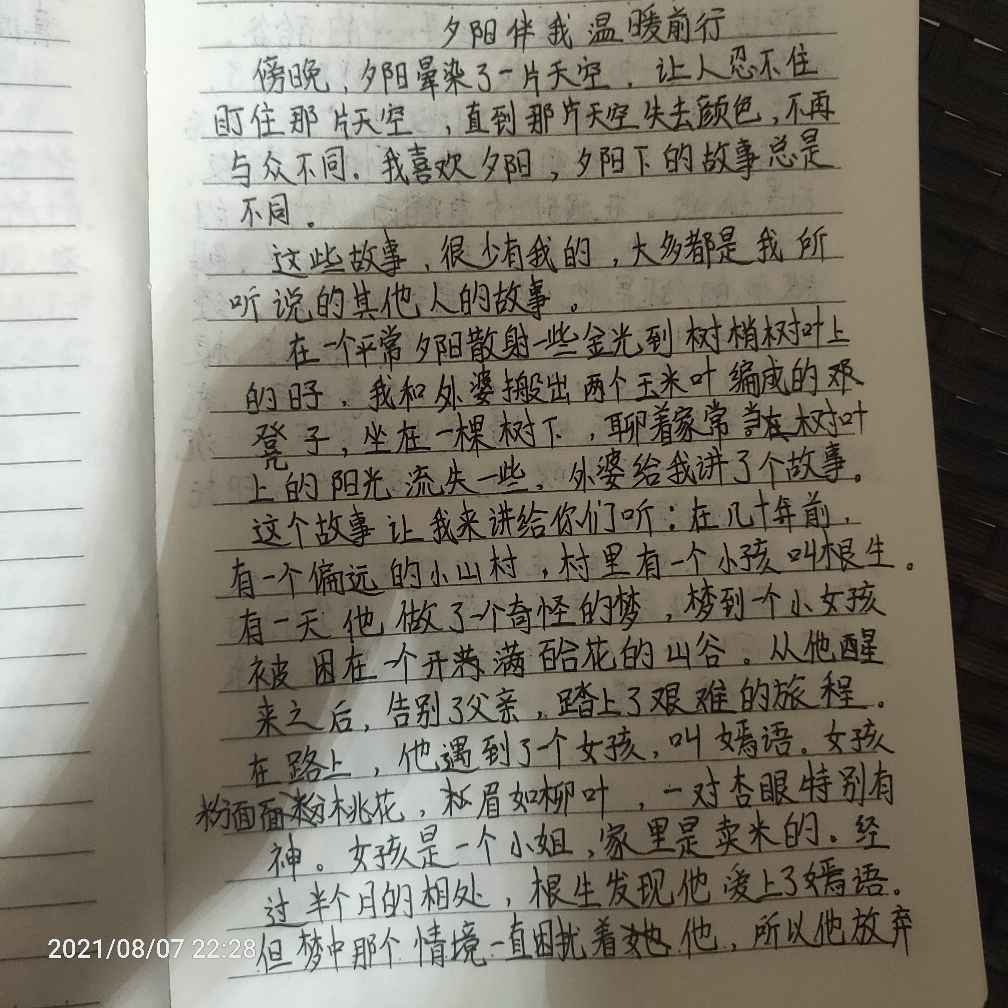 夕阳伴我温暖前行
傍晚，夕阳晕染了一片天空，让人忍不住
盯住那片天空，直到那片天空失去颜色，不再
与众不同。我喜欢夕阳，夕阳下的故事总是
不同。
这些故事，很少有我的，大多都是我所
听说的其他人的故事。
在一个平常夕阳散射一些金光到树梢树叶上
的日子，我和外婆搬出两个玉米叶编成的
凳子，坐在一棵树下，聊着家常当在树叶
上的阳光流失一些，外婆给我讲了个故事。
这个故事让我来讲给你们听：在几十年前，
有一个偏远的小山村，村里有一个小孩叫根生。
有一天他做了一个奇怪的梦，梦到一个小女孩
被困在一个开满百合花的山谷。从他醒
来之后，告别了父亲，踏上了艰难的旅程。
在路上，他遇到了个女孩，叫嫣语。女孩
粉面面桃花，眉如柳叶，一对杏眼特别有
神。女孩是一个小姐，家里是卖米的。经
过半个月的相处，根生发现他爱上了嫣语。
但梦中那个情境一直困扰着他，所以他放弃
2021/08/07 22:28